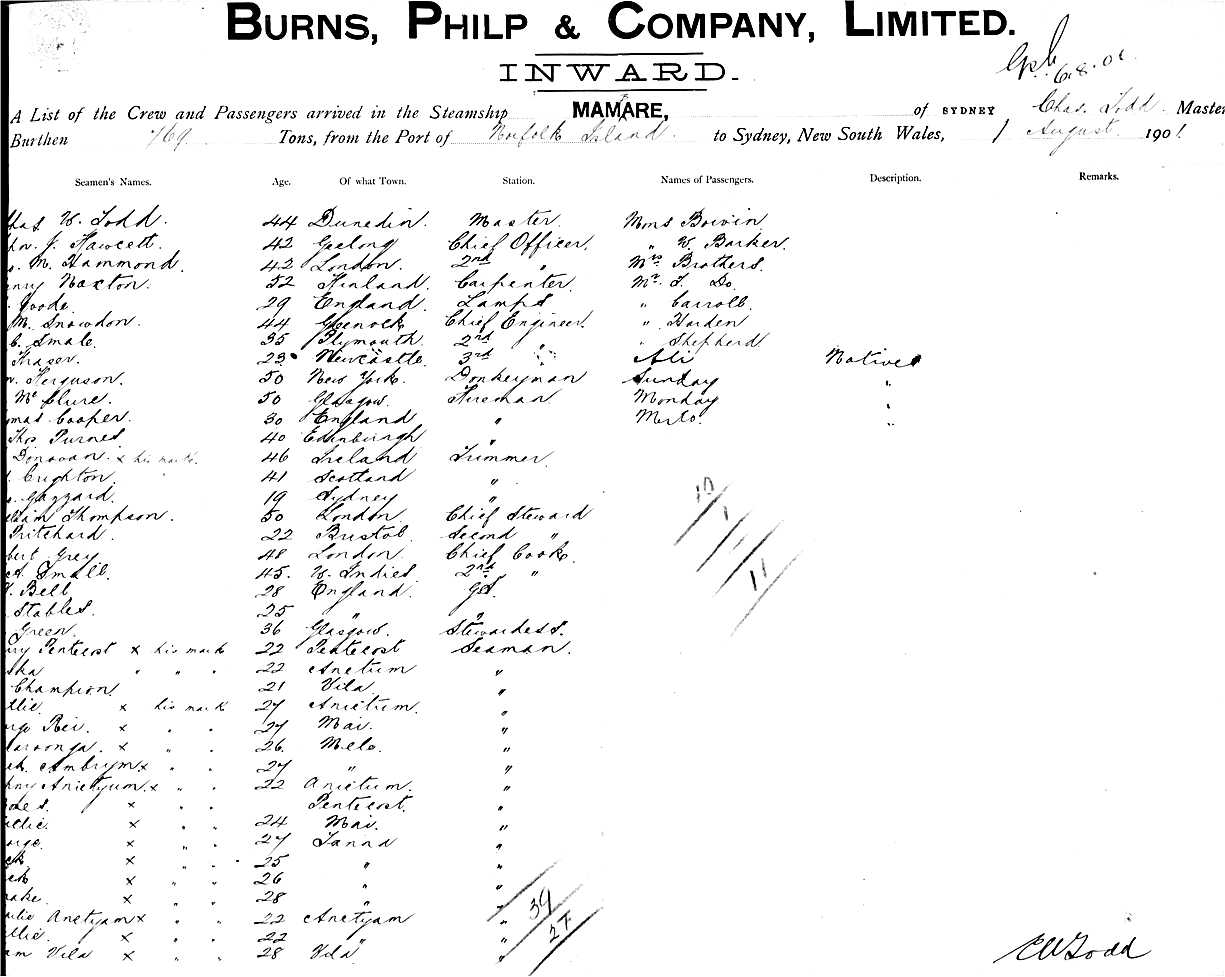 BURNS, PHILP & COMPANY, LIMITED.
INWARD.
6.8.01
A List of the Crew and Passengers arrived in the Steamship MAMARE, of SYDNEY Chas. Todd Master
Burthen 769 Tons, from the Port of Norfolk Island to Sydney, New South Wales, 1 August 1901
Seamen's Names. Age. Of what Town. Station. Names of Passengers. Description. Remarks.
has W. Todd. 44 Dunedin. Master Mons Boivin
J. Fawcett. 42 Geelong Chief Officer. " W. Barker.
M. Hammond. 42 London. 2nd " Mrs. Brothers.
nry Naxton. 52 Finland. Carpenter. Mr. J. Do.
Goode. 29 England. Lamps " Carroll.
M. Snowdon. 44 Greenock Chief Engineer. " Harden
C. Smale. 35 Plymouth. 2nd " " Shepherd
Fraser. 23 Newcastle. 3rd " Ali Natives
Ferguson. 50 New York. Donkeyman Sunday "
McClure. 50 Glasgow. Fireman. Monday "
omas Cooper. 30 England " "
Thos Purnes 40 Edinburgh "
Donovan. x his mark. 46 Ireland Trimmer.
Crighton. 41 Scotland "
Gazzard. 19 Sydney "
lliam Thompson. 50 London. Chief Steward
Pritchard. 22 Bristol. Second "
bert Grey 48 London. Chief Cook.
Small. 45. W. Indies. 2nd "
Bell 28 England. G.S.
Stables. 25 " "
Green. 36 Glasgow. Stewardess.
ry Pentecost x his mark 22 Pentecost Seaman.
ska " " " 22 Anetum "
Champion 21 Vila "
llie. x his mark 27 Anietum. "
rge Rei. x " " 27 Mai. "
aroonga. x " " 26. Mele. "
ck Ambrym x " " 27 " "
hny Anietyum. x " " 22 Anietum. "
x " " Pentecost. "
illie. x " " 24 Mai. "
orge. x " " 27 Tanna "
ck x " " 25 " "
ck x " " 26 " "
ake. x " " 28 " "
arlie Anetyam x " " 22 Anetyam "
illie. x " " 22 " "
am Vila x " " 28 Vila "
10
1
11
39
27
C W Todd